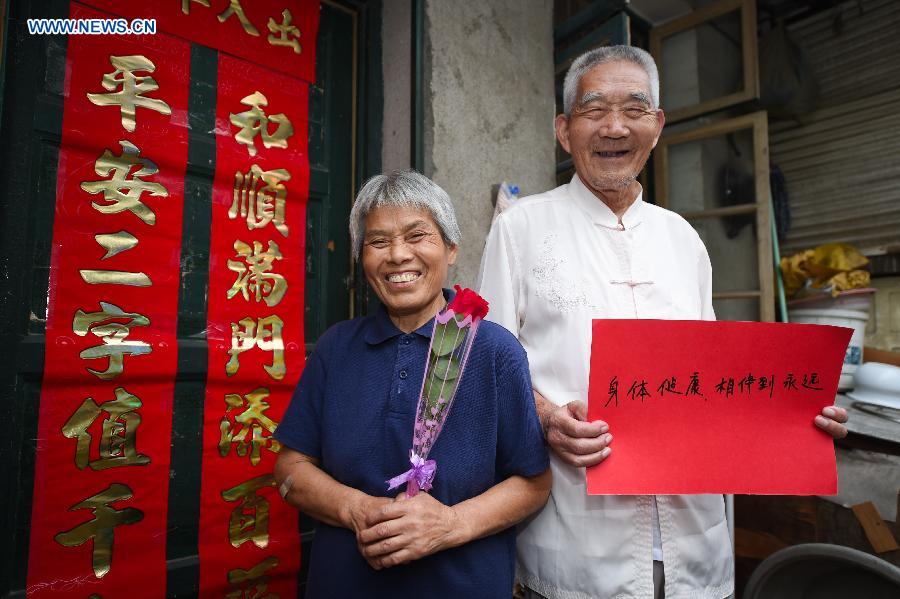 WWW.NEWS.CN
出入
和順满门添百
平安二字值千
身体健康.相伴到永远